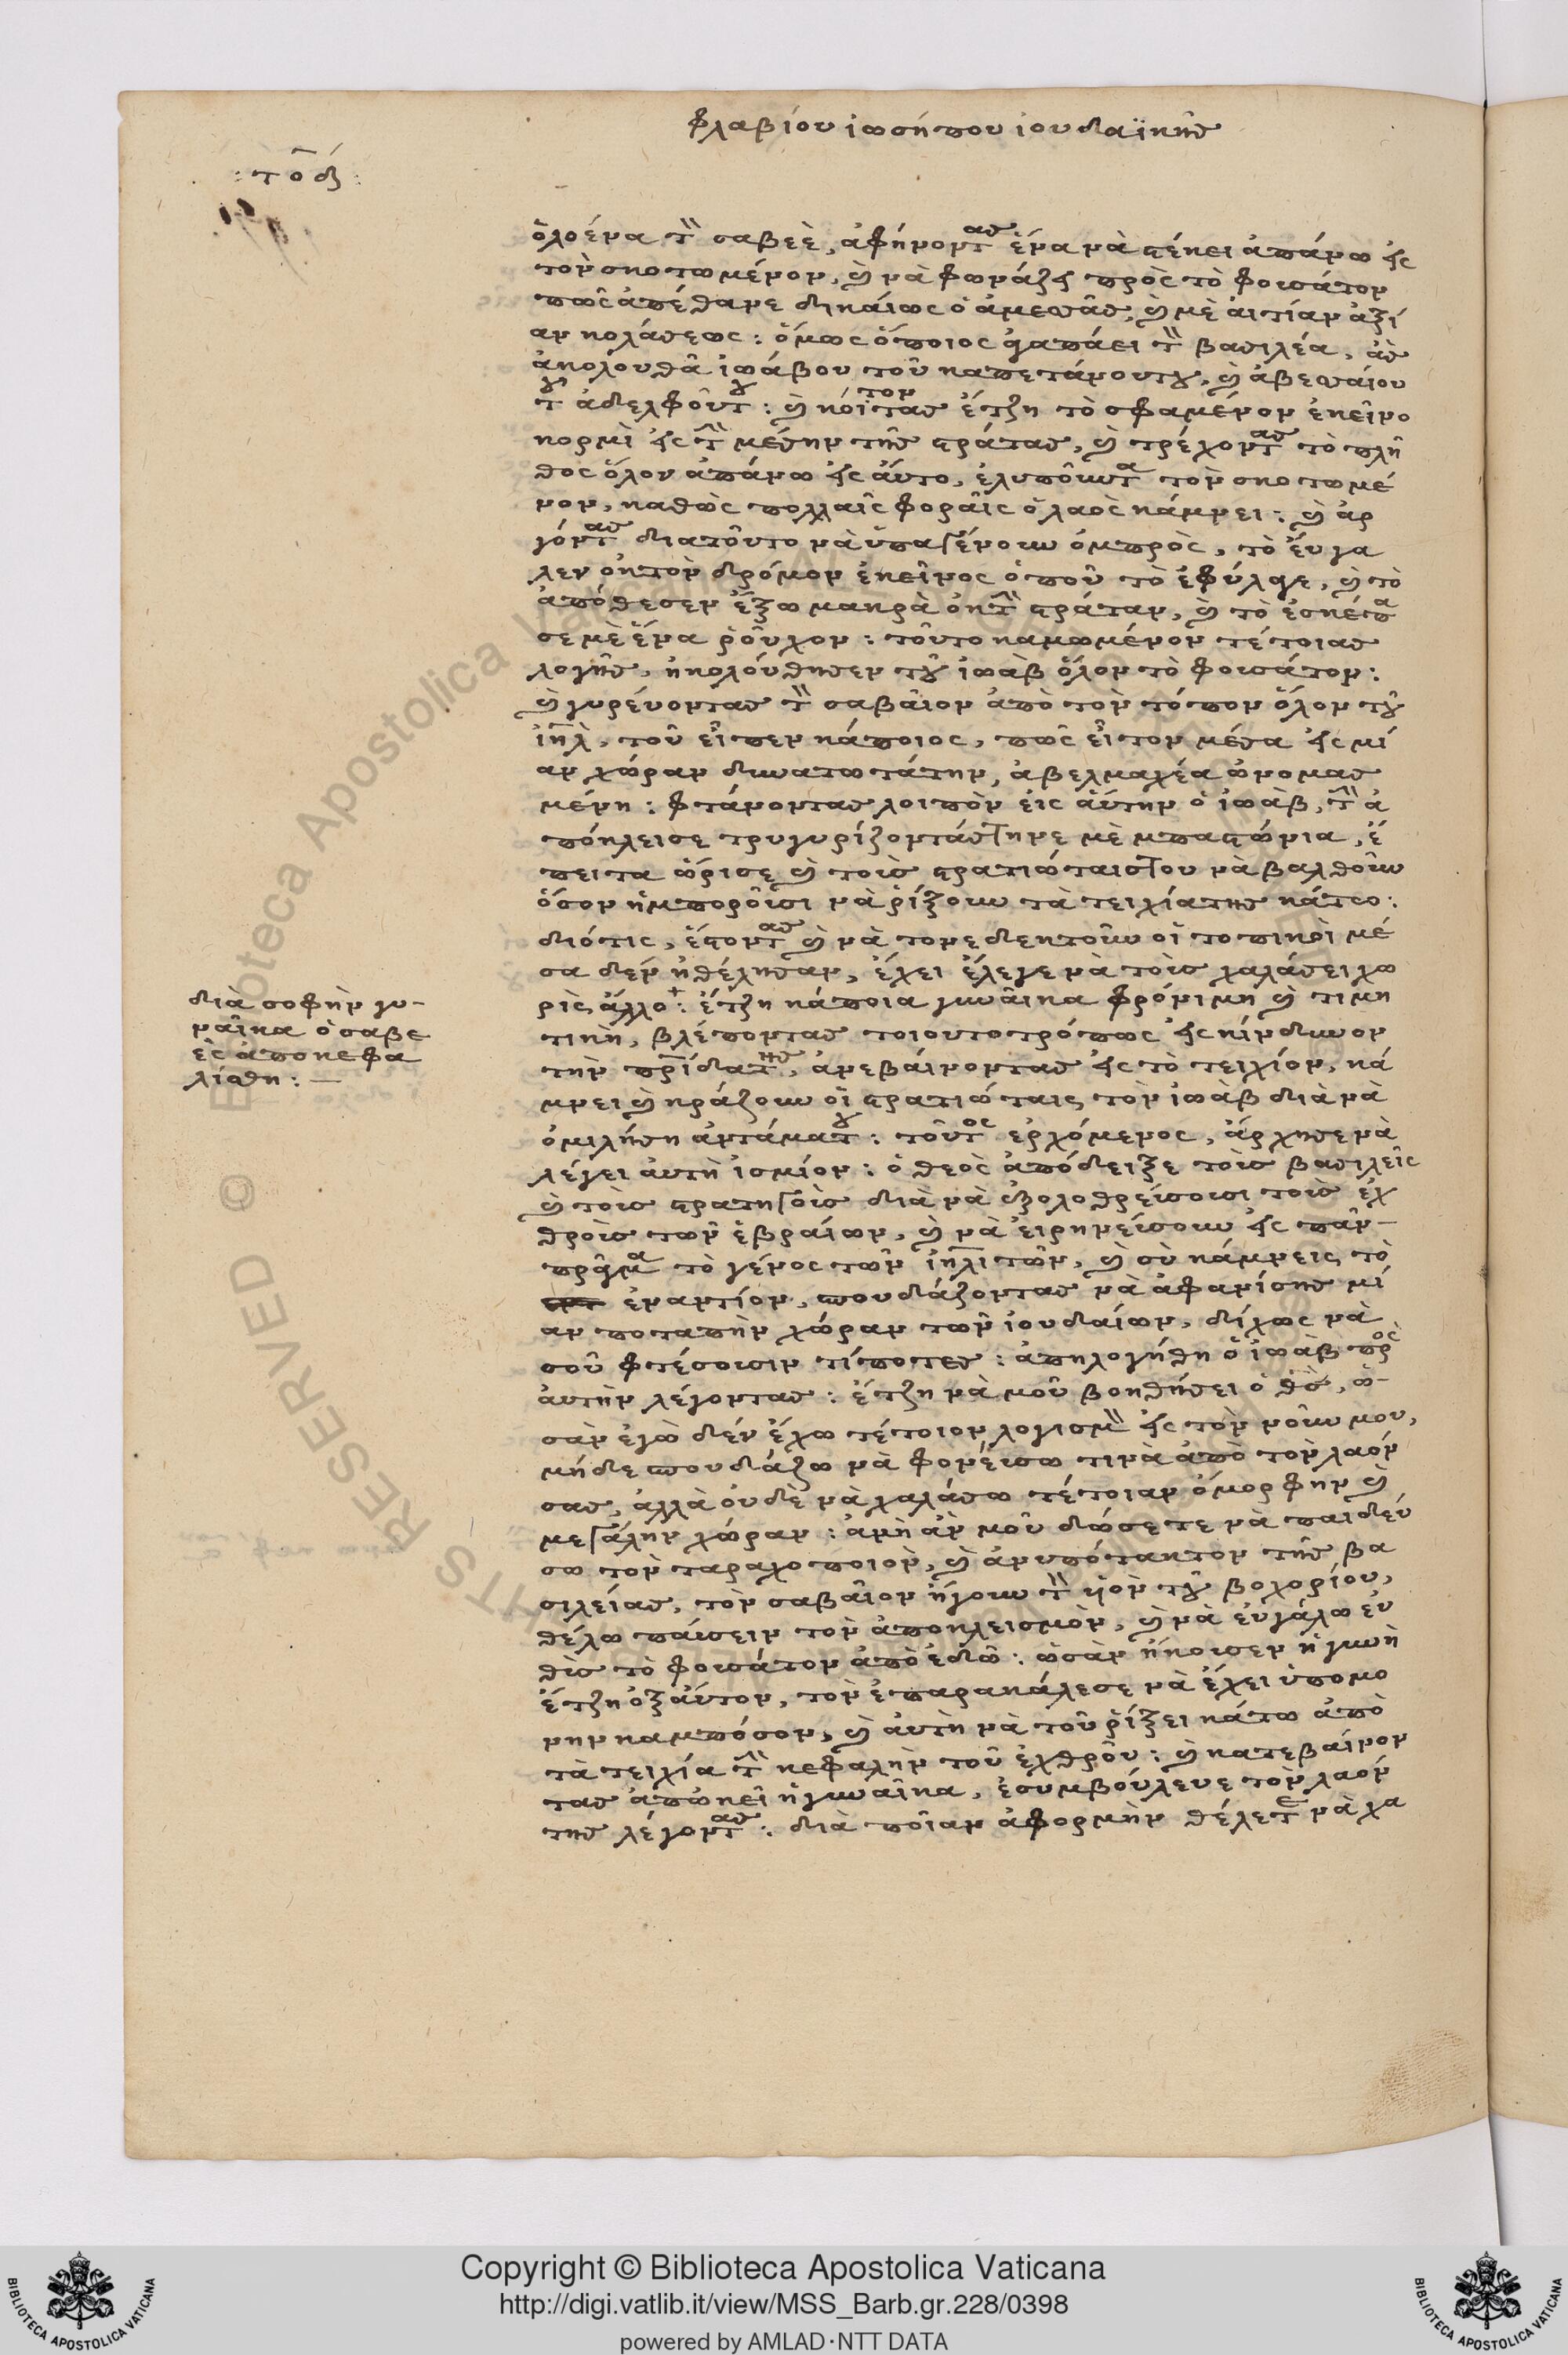 φλαβίου ἰωσήπου ἰουδαϊκῆσ
: τ ο δ :
ὁλοένα τὸν σαβεὲ, ἀφήνοντας ἕνα νὰ στένει ἀπάνω εἰς
τὸν σκοτωμένον, καὶ νὰ φωνάζει πρὸς τὸ φουσάτον
πῶς ἀπέθανε δικαίως ὁ ἀμεσᾶσ, καὶ μὲ αἰτίαν ἀξί
αν κολάσεως : ὅμως ὅποιος ἀγαπάει τὸν βασιλέα, ἂσ
ἀκολουθᾶ ἰωάβου τοῦ καπετάνου του, καὶ ἀβεσαίου
τοῦ ἀδελφοῦ του : καὶ κοίτοντασ ἔτζη τὸ σφαμένον ἐκεῖνο
κορμὶ εἰς τὴν μέσην τῆσ στράτασ, καὶ τρέχοντασ τὸ πλῆ
θος ὅλον ἀπάνω εἰς ἄυτο, ἐλυποῦντα τὸν σκοτωμέ
νον, καθὼς πολλαῖς φοραῖς ὁ λαὸς κάμνει : καὶ ἀρ
γόντασ διατοῦτο νὰ ὑπαγένουν ὀμπρὸς, τὸ ἔυγα
λεν ὀκ τὸν δρόμον ἐκεῖνος ὁποῦ τὸ ἐφύλαγε, καὶ τὸ
ἀπόθεσεν ἔξω μακρὰ ὀκ τὴν στράταν, καὶ τὸ ἐσκέπα
σε μὲ ἕνα ῥοῦχον : τοῦτο καμωμένον τέτοιασ
λογῆσ, ἠκολούθησεν τοῦ ἰωὰβ ὅλον τὸ φουσάτον :
καὶ γυρεύοντασ τὸν σαβαῖον ἀπὸ τὸν τόπον ὅλον τοῦ
ἰηλ, τοῦ εἶπεν κάποιος, πῶς εἶτον μέσα εἰς μί
αν χώραν δυνατωτάτην, ἀβελμαχέα ὠνομασ
μένη : φτάνοντασ λοιπὸν εἰς ἄυτην ὁ ἰωὰβ, τὴν ἀ
πόκλεισε τρυγυρίζοντάσ την κὲ μὲ μπαστιώνια, ἔ
πειτα ὥρισε καὶ τοὶσ στρατιώταισ του νὰ βαλθοῦν
ὅσον ἠμποροῖσι νὰ ῥίξουν τὰ τειχία τησ κάτω :
διότις, ἔστοντασ καὶ νὰ τονε δεκτοῦν οἱ τοπικοὶ μέ
σα δὲν ἠθέλησαν, ἔχει ἔλεγε νὰ τοὶσ χαλάσει χω
ρὶς ἄλλο : ἔτζη κάποια γυναῖκα φρόνιμη καὶ τιμη
τικὴ, βλέποντασ τοιουτοτρόπως εἰς κίνδυνον
τὴν πρίδα τησ, ἀνεβαίνοντασ εἰς τὸ τειχίον, κά
μνει καὶ κράζουν οἱ στρατιώταις τὸν ἰωὰβ διὰ νὰ
ὁμιλήση ἀντάμα του : τοῦτος ἐρχόμενος, ἄρχησε νὰ
λέγει ἀυτὴ ἰσμίον : ὁ θεὸς ἀπόδειξε τοὶσ βασιλεῖς
καὶ τοὶσ στρατηγοὶσ διὰ νὰ ἐξολοθρείσουσι τοὶσ ἐχ
θροὶσ τῶν ἑβραίων, καὶ νὰ εἰρηνείσουν εἰς πᾶν
πρᾶγμα τὸ γένος τῶν ἰηλιτῶν, καὶ σὺ κάμνεις τὸ
ἐναντίον, σπουδάζοντασ νὰ ἀφανίσησ μί
αν ποταπὴν χώραν τῶν ἰουδαίων, δίχως νὰ
σοῦ φτέσουσιν τίποτεσ : ἀπηλογήθη ὁ ἰωὰβ πρὸς
ἀυτὴν λέγοντασ : ἔτζη νὰ μοῦ βοηθήσει ὁ θσ, ὡ-
σὰν ἐγὼ δὲν ἔχω τέτοιον λογισμὸν εἰς τὸν νοῦν μου,
μήδε σπουδάζω νὰ φονείσω τινὰ ἀπὸ τὸν λαόν
σασ, ἀλλὰ οὐδὲ νὰ χαλάσω τέτοιαν ὄμορφην καὶ
μεγάλην χώραν : ἀμὴ ἂν μοῦ δώσετε νὰ παιδεύ
σω τὸν ταραχοποιὸν, καὶ ἀνυπότακτον τῆσ βα
σιλείασ, τὸν σαβαῖον ἤγουν τὸν υἱὸν τοῦ βοχορίου,
θέλω παύσειν τὸν ἀποκλεισμὸν, καὶ νὰ ἐυγάλω ἐυ
θὶσ τὸ φουσάτον ἀπὸ ἐδῶ : ὡσὰν ἤκουσεν ἡ γυνὴ
ἔτζη ὀξ ἄυτον, τὸν ἐπαρακάλεσε νὰ ἔχει ὑπομο
νην καμπόσον, καὶ ἀυτὴ νὰ τοῦ ῥίξει κάτω ἀπὸ
τὰ τειχία τὴν κεφαλὴν τοῦ ἐχθροῦ : καὶ κατεβαίνον
τασ ἀπ' ἐκεῖ ἡ γυναῖκα, ἐσυμβούλευε τὸν λαόν
τησ λέγοντασ : διὰ ποῖαν ἀφορμὴν θέλετε νὰ χα
διὰ σοφὴν γυ-
ναῖκα ὁ σαβε
ὲς ἀποκεφα
λίσθη : —
Copyright © Biblioteca Apostolica Vaticana
http://digi.vatlib.it/view/MSS_Barb.gr.228/0398
powered by AMLAD·NTT DATA
BIBLIOTECA APOSTOLICA VATICANA
BIBLIOTECA APOSTOLICA VATICANA